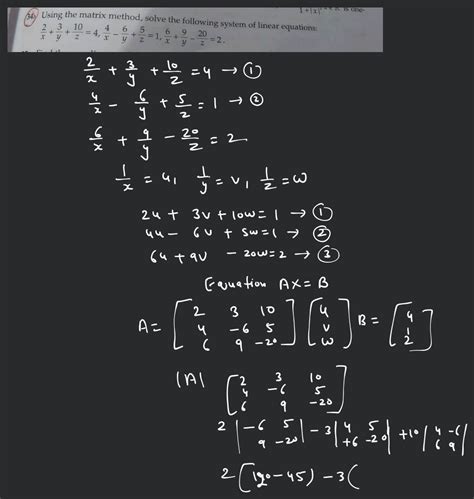 36. Using the matrix method, solve the following system of linear equations:
2/x + 3/y + 10/z = 4, 4/x − 6/y + 5/z = 1, 6/x + 9/y − 20/z = 2.
2/x + 3/y + 10/z = 4 → ①
4/x − 6/y + 5/z = 1 → ②
6/x + 9/y − 20/z = 2
1/x = u, 1/y = v, 1/z = w
2u + 3v + 10w = 1 → ①
4u − 6v + 5w = 1 → ②
6u + 9v − 20w = 2 → ③
Equation AX = B
A = [2 3 10; 4 −6 5; 6 9 −20] [u; v; w] B = [4; 1; 2]
|A| [2 3 10; 4 −6 5; 6 9 −20]
2 |−6 5; 9 −20| − 3 |4 5; +6 −20| + 10 |4 −6; 6 9|
2 (120 − 45) − 3 (